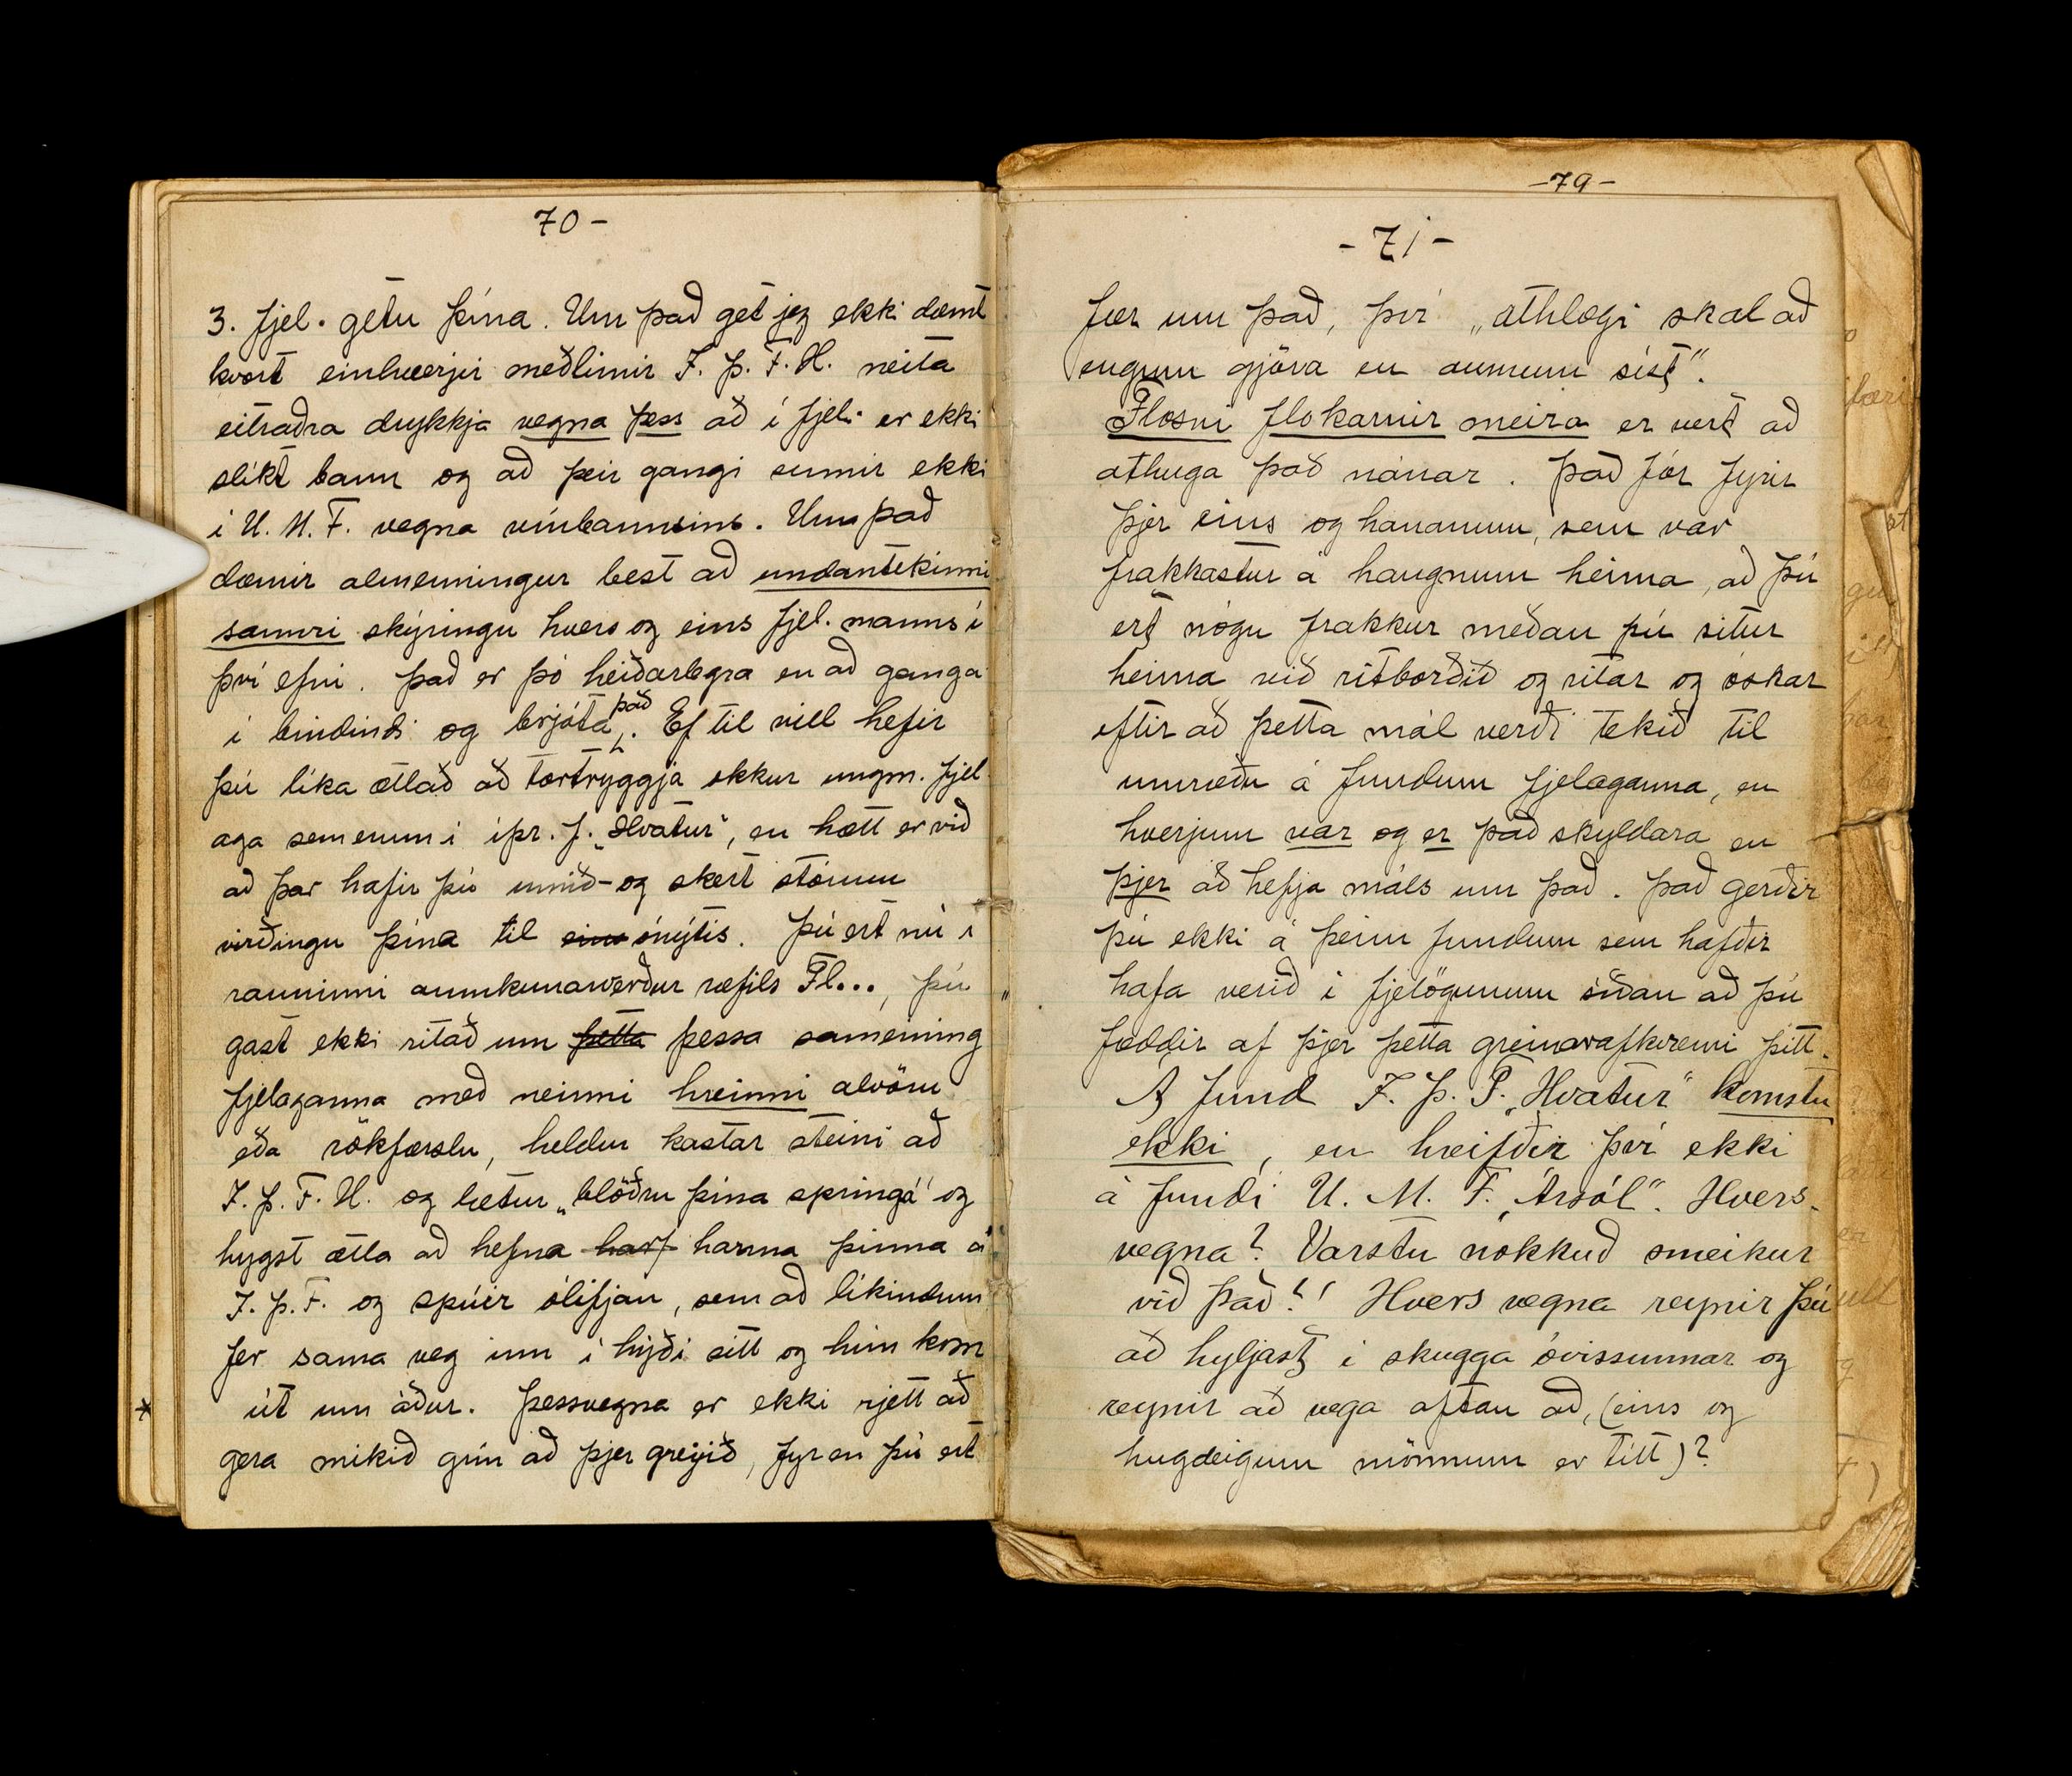 70 -
3. fjel. getu þína. Um það get jeg ekki dæmt
hvort einhverjir meðlimir I. Þ. F. H. neita
eitraðra drykkja vegna þess að í fjel. er ekki
slíkt bann og að þeir gangi sumir ekki
í U. M. F. vegna vínbannsins. Um það
dæmir almenningur best að undantekinni
sannri skýringu hvers og eins fjel. manns í
því efni. Það er þó heiðarlegra en að ganga
í bindindi og brjóta það. Ef til vill hefir
þú líka ætlað að tortryggja okkur ungm. fjel
aga sem erum í íþr. f. „Hvatur", en hætt er við
að þar hafir þú unnið- og skert stórum
virðingu þína til eins ónýtis. Þú ert nú í
rauninni aumkunarverður ræfils Fl..., þú
gast ekki ritað um þetta þessa sameining
fjelaganna með neinni hreinni alvöru
eða rökfærslu, heldur kastar steini að
I. Þ. F. H. og lætur „blöðru þína springa" og
hygst ætla að hefna harf harma þinna á
I. Þ. F. og spúir ólifjan, sem að líkindum
fer sama veg inn í hýði sitt og hún kom
út um áður. Þessvegna er ekki rjett að
gera mikið grín að þjer greyið, fyr en þú ert
-79-
- 71 -
fær um það, því „athlægi skal að
engum gjöra en aumum síst".
Flosni flokarnir meira er vert að
athuga það nánar. Það fór fyrir
þjer eins og hananum, sem var
frakkastur á haugnum heima, að þú
ert nógu frakkur meðan þú situr
heima við ritborðið og ritar og óskar
eftir að þetta mál verði tekið til
umræðu á fundum fjelaganna, en
hverjum var og er það skyldara en
þjer að hefja máls um það. Það gerðir
þú ekki á þeim fundum sem hafðir
hafa verið í fjelögunum síðan að þú
fæddir af þjer þetta greinarafkvæmi þitt.
Á fund I. Þ. F. „Hvatur" komstu
ekki, en hreifðir því ekki
á fundi U. M. F. „Ársól". Hvers-
vegna? Varstu nokkuð smeikur
við það?! Hvers vegna reynir þú
að hyljast í skugga óvissunnar og
reynir að vega aftan að, (eins og
hugdeigum mönnum er títt)?